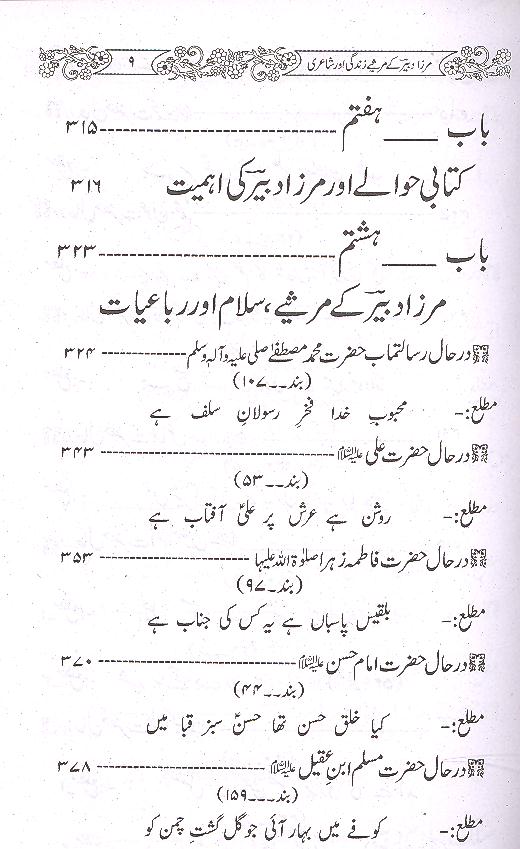 مرزا دبیرؔ کے مرثیے زندگی اور شاعری ۹
باب ـــــ ہفتم ------------------------ ۳۱۵
کتابی حوالے اور مرزا دبیرؔ کی اہمیت ۳۱۶
باب ـــــ ہشتم ------------------------ ۳۲۳
مرزا دبیرؔ کے مرثیے، سلام اور رباعیات
در حال رسالتماب حضرت محمد مصطفےٰ صلی علیہ وآلہ وسلم ------------ ۳۲۴
(بند۔۔۱۰۷)
مطلع:- محبوبِ خدا فخرِ رسولانِ سلف ہے
در حال حضرت علی علیہ السلام ------------------------ ۳۴۳
(بند۔۔۵۳)
مطلع:- روشن ہے عرش پر علیؑ آفتاب ہے
در حال حضرت فاطمہ زہرا صلوٰۃ اللہ علیہا ------------------ ۳۵۳
(بند۔۹۷)
مطلع:- بلقیس پاسباں ہے یہ کس کی جناب ہے
در حال حضرت امام حسن علیہ السلام ------------------------ ۳۷۰
(بند۔۔۴۴)
مطلع:- کیا خلق حسن تھا حسنؑ سبز قبا میں
در حال حضرت مسلم ابنِ عقیل علیہ السلام ------------------ ۳۷۸
(بند۔۔۔۱۵۹)
مطلع:- کوفے میں بہار آئی جو گل گشتِ چمن کو